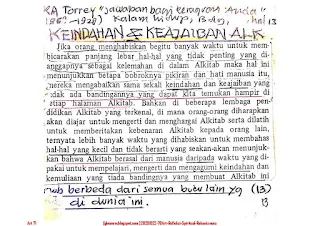 RA Torrey "jawaban bagi keraguan Anda"
(1856-1928) Kalam Hidup, Bdg, hal 13
KEINDAHAN & KEAJAIBAN ALK
Jika orang menghabiskan begitu banyak waktu untuk mem-
bicarakan panjang lebar hal-hal yang tidak penting yang di-
anggapnya sebagai kelemahan di dalam Alkitab maka hal ini
menunjukkan betapa bobroknya pikiran dan hati manusia itu,
mereka mengabaikan sama sekali keindahan dan keajaiban yang
tidak ada bandingannya yang dapat kita temukan hampir di
setiap halaman Alkitab. Bahkan di beberapa lembaga pen-
didikan Alkitab yang terkenal, di mana orang-orang diharapkan
akan diajar untuk mengerti dan menghargai Alkitab serta dilatih
untuk memberitakan kebenaran Alkitab kepada orang lain,
ternyata lebih banyak waktu yang dihabiskan untuk membahas
hal-hal yang kecil dan tidak berarti yang seakan-akan menunjuk-
kan bahwa Alkitab berasal dari manusia daripada waktu yang di-
pakai untuk mempelajari, mengerti dan mengagumi keindahan dan
kemuliaan yang tiada bandingnya yang membuat Alkitab ini
berbeda dari semua buku lain yg (13)
di dunia ini. 13